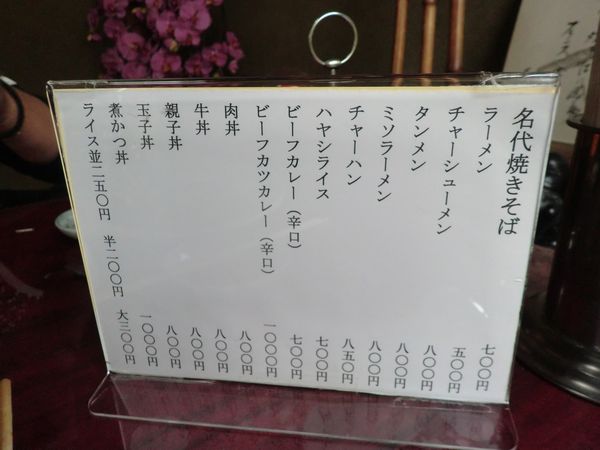 名代焼きそば 七〇〇円
ラーメン 五〇〇円
チャーシューメン 八〇〇円
タンメン 八〇〇円
ミソラーメン 八〇〇円
チャーハン 八五〇円
ハヤシライス 七〇〇円
ビーフカレー（辛口） 七〇〇円
ビーフカツカレー（辛口） 一〇〇〇円
肉丼 八〇〇円
牛丼 八〇〇円
親子丼 八〇〇円
玉子丼 八〇〇円
煮かつ丼 一〇〇〇円
ライス並二五〇円 半二〇〇円 大三〇〇円